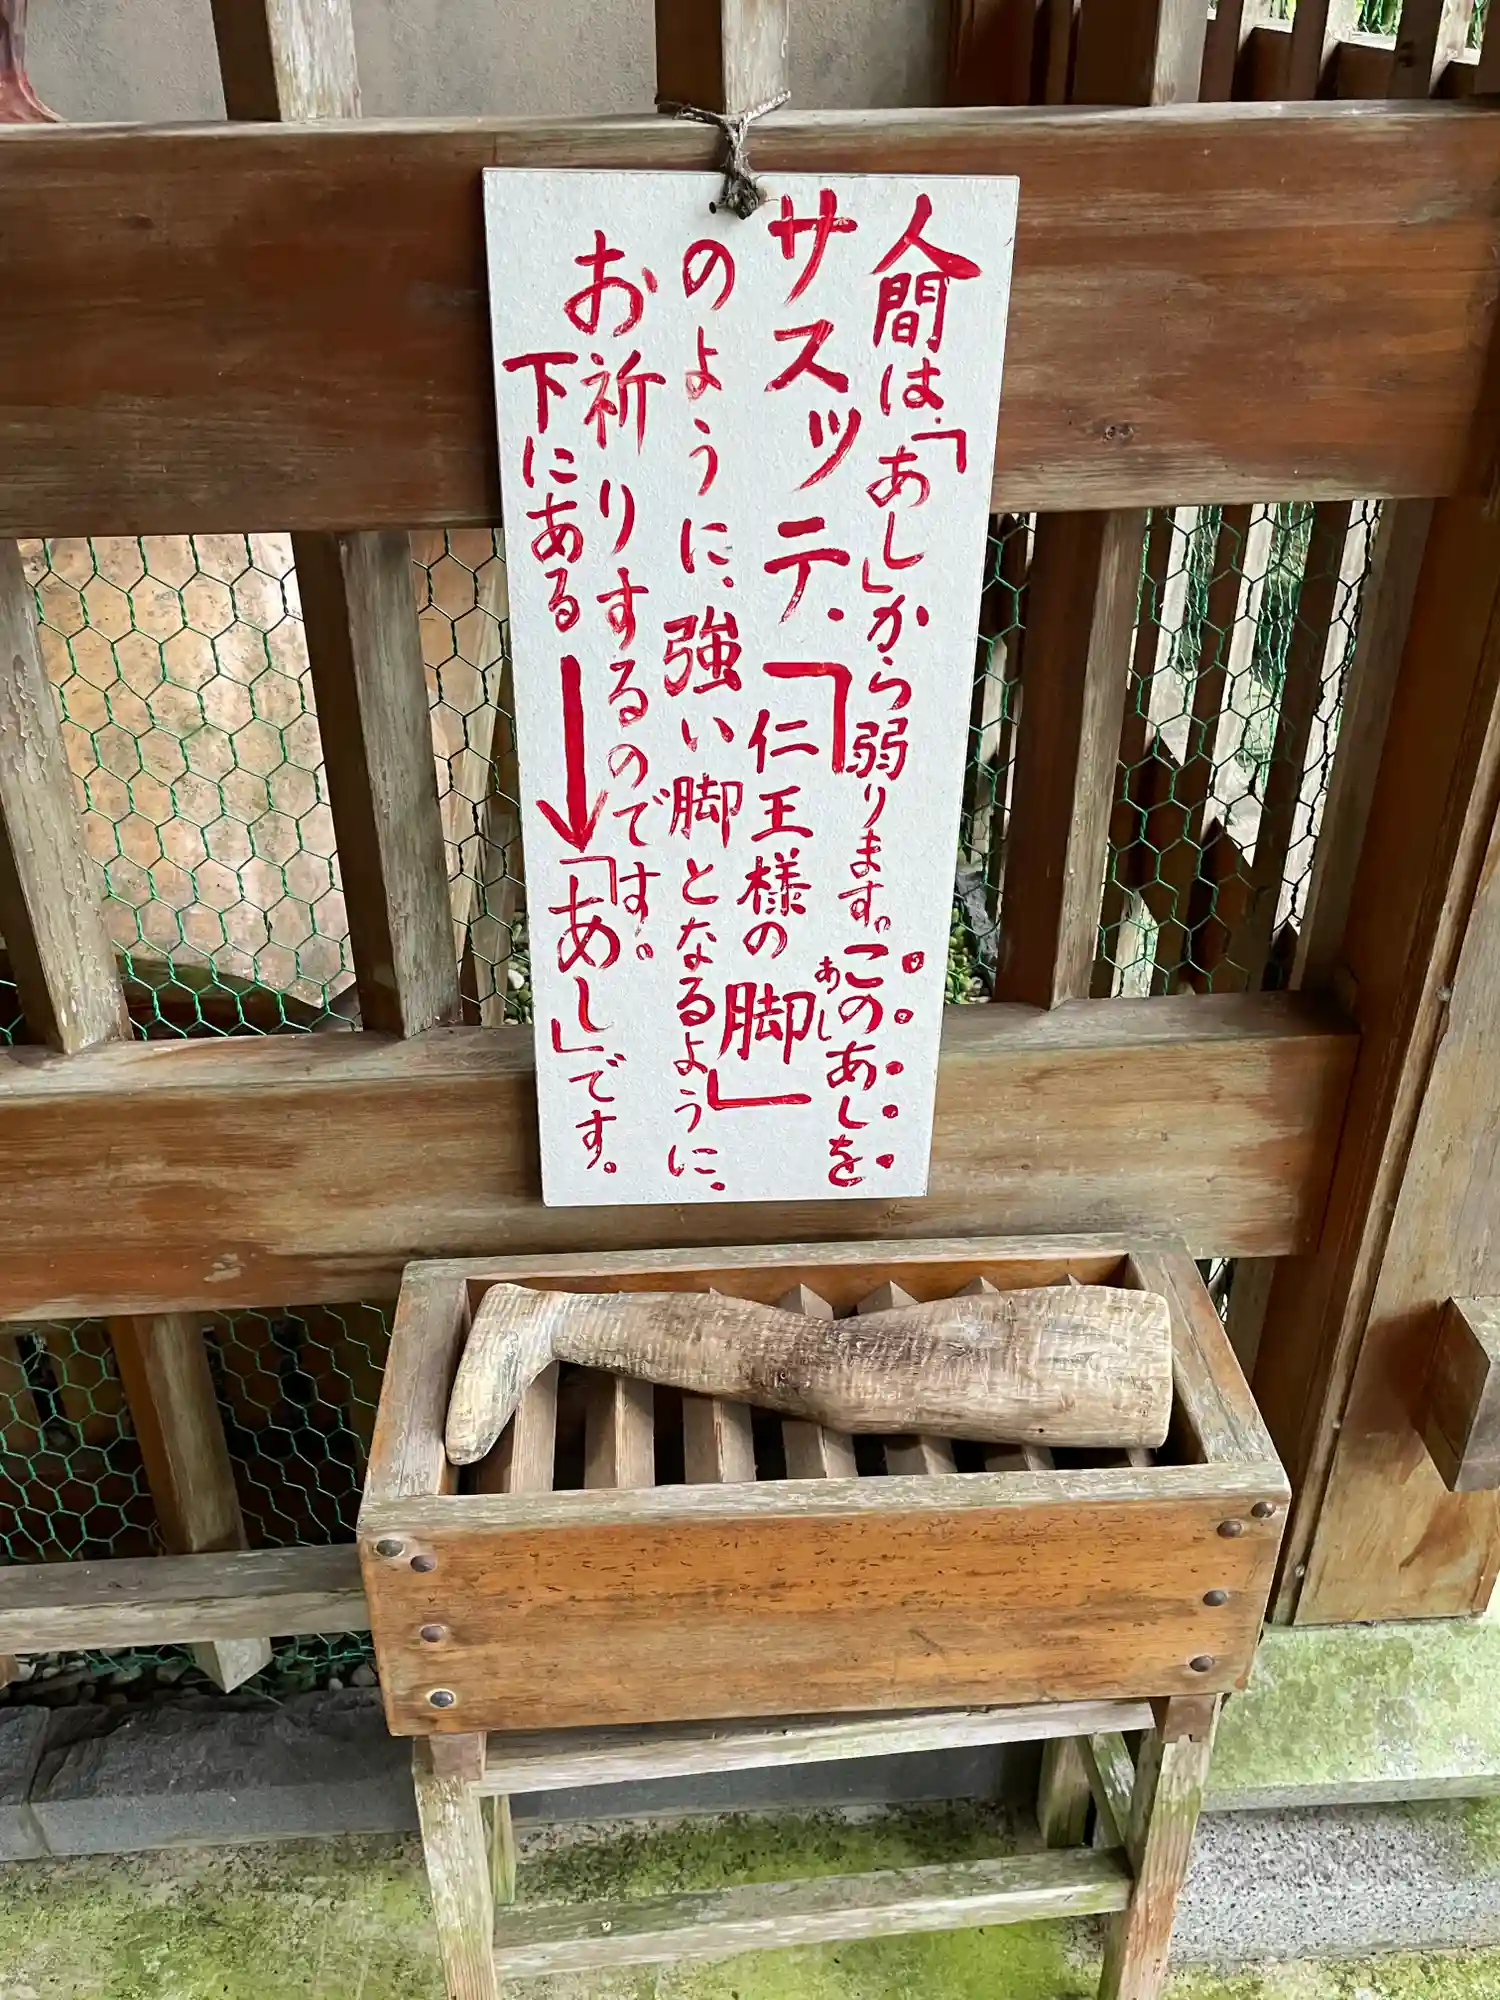 人間は、「あし」から弱ります。このあしを
サスッテ、「仁王様の脚」
あし
のように、強い脚となるように、
お祈りするのです。
下にある↓「あし」です。